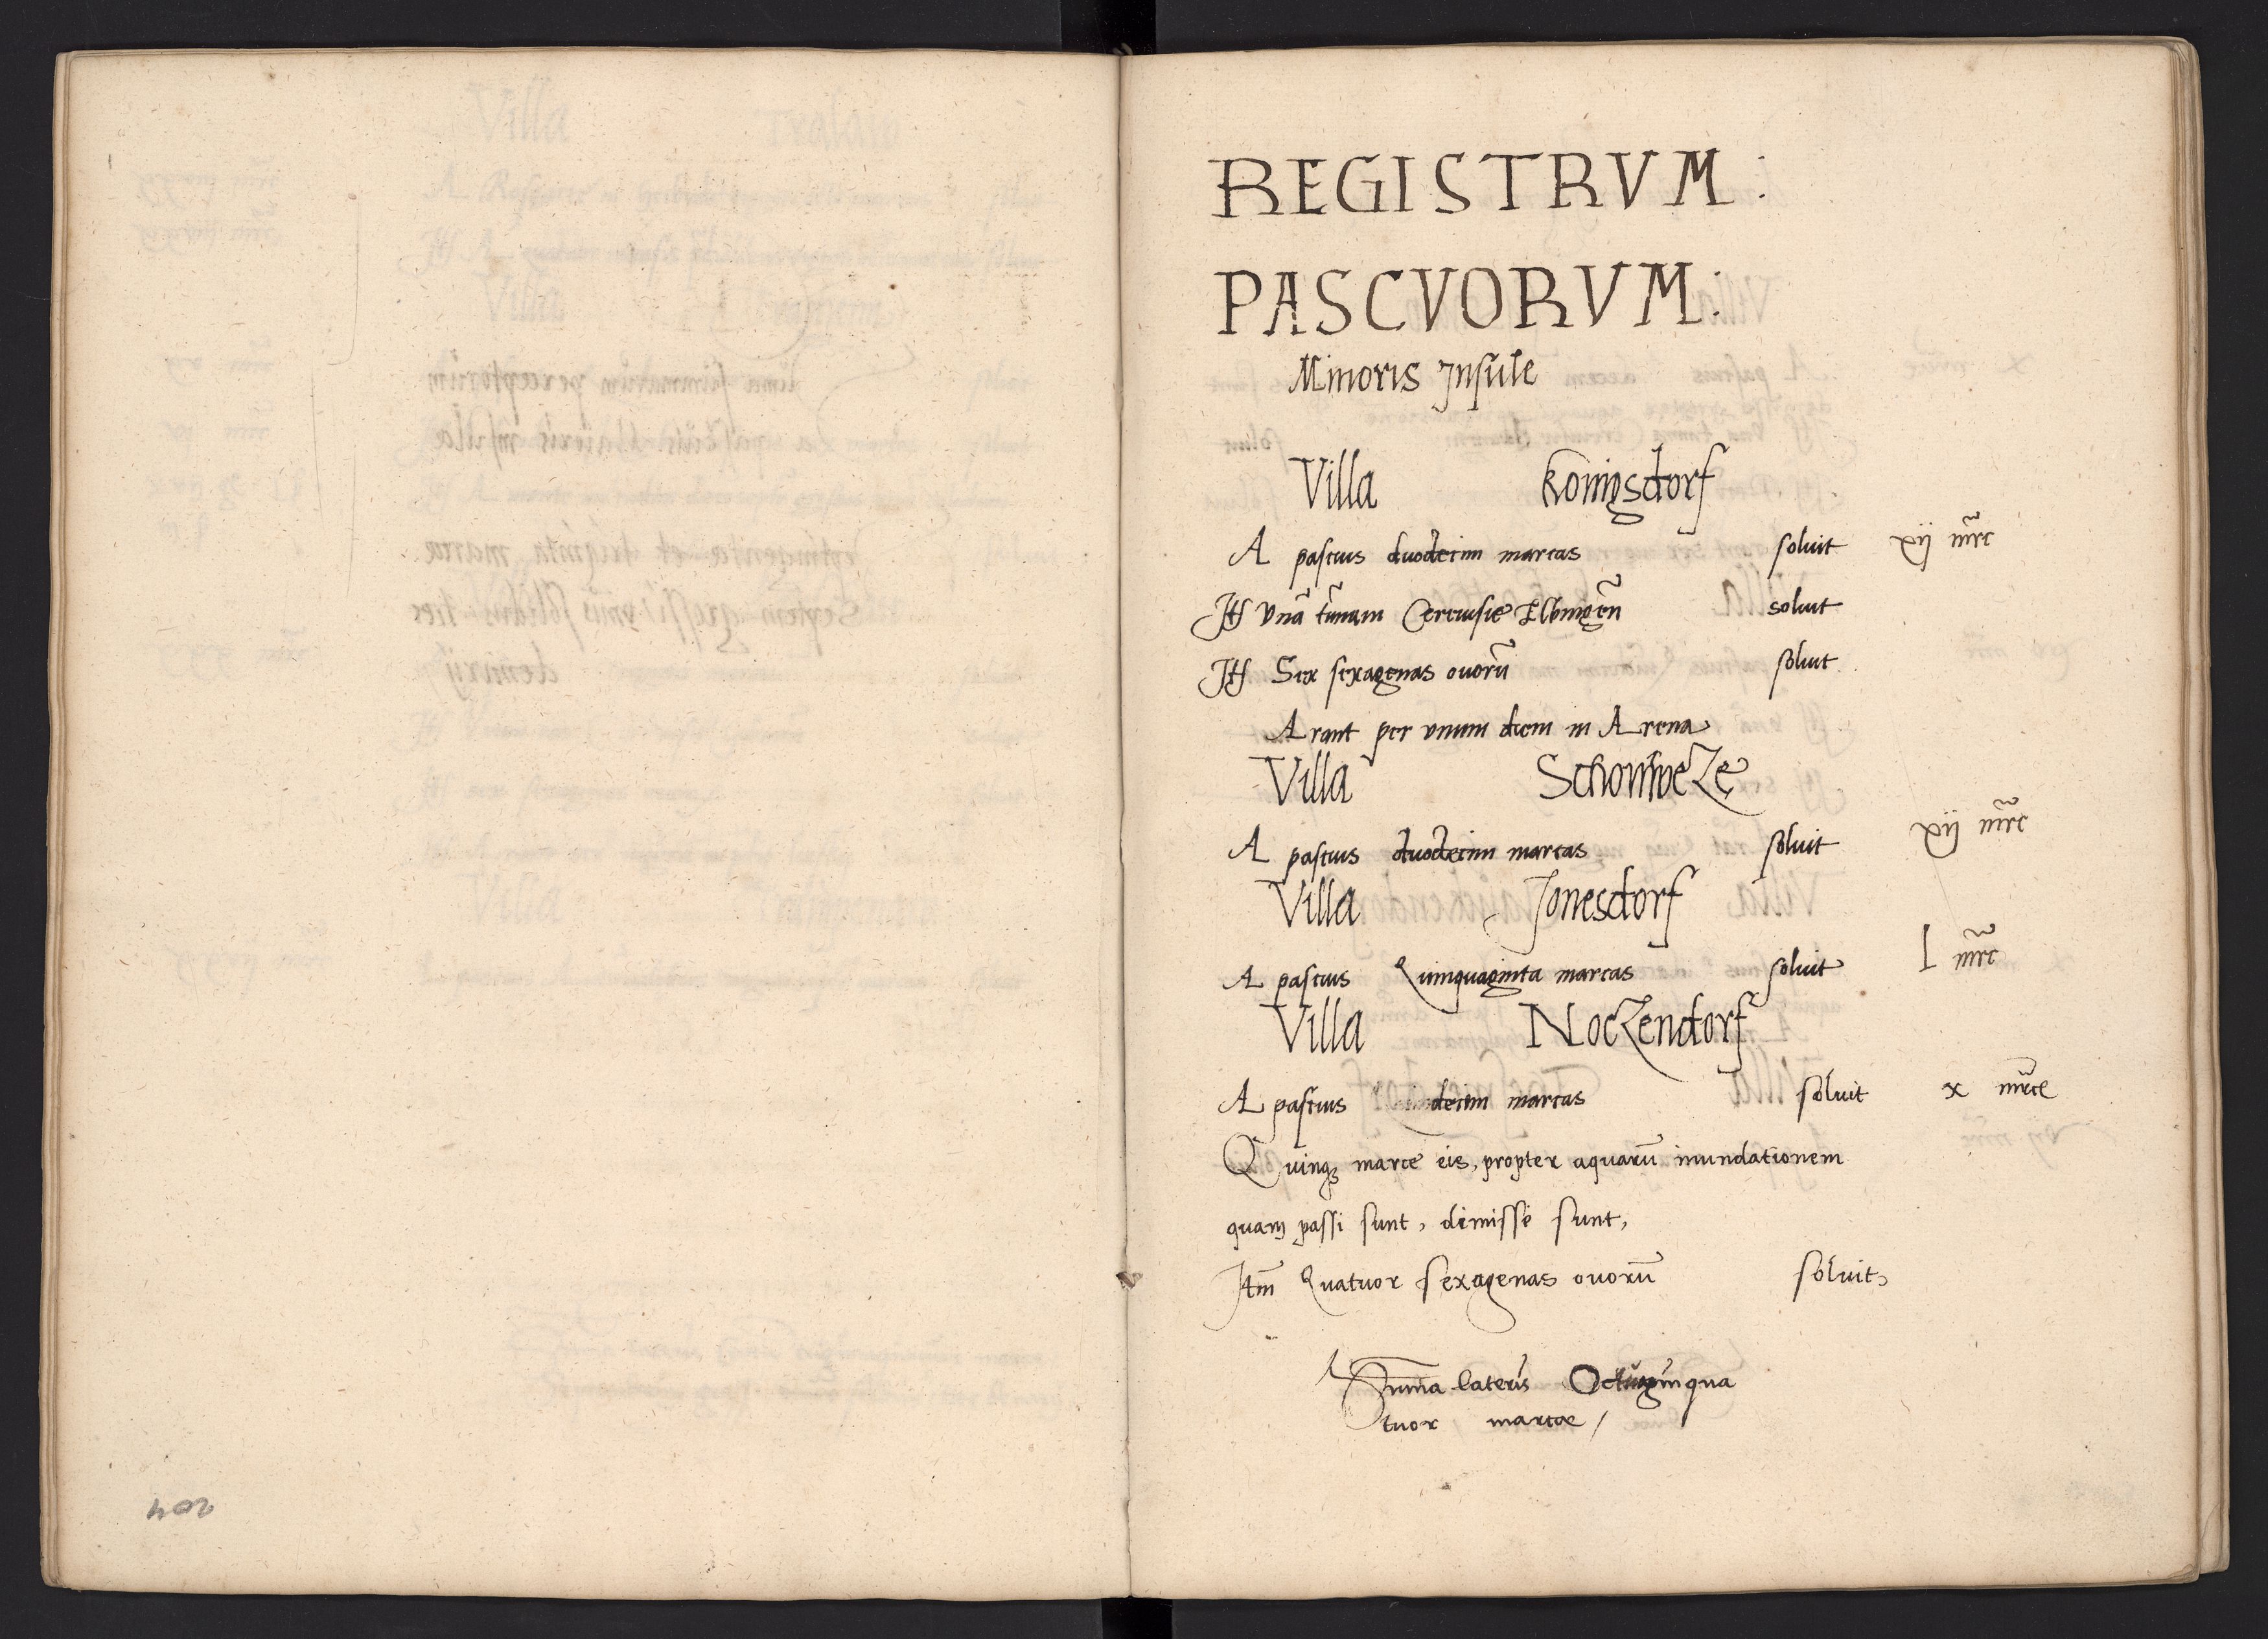 REGISTRVM:
PASCVORVM:
Minoris Insule
Villa Konigsdorf
A pascuis duodecim marcas soluit xij mrc
Itm Vnã tunnam Cereuisie Elbingeñ soluit
Itm Sex sexagenas ouorũ soluit
Arant per vnum diem in Arena
Villa Schonweze
A pascuis duodecim marcas soluit xij mrc
Villa Jonesdorf
A pascuis Quinquaginta marcas soluit l mrc
Villa Noczendorf
A pascuis decim marcas soluit x mrce
Quinqz marce eis, propter aquarũ inundationem
quam passi sunt, dimisse sunt,
Itm Quatuor sexagenas ouorũ soluit,
Summa lateris Octuaginqua
tuor marcae /